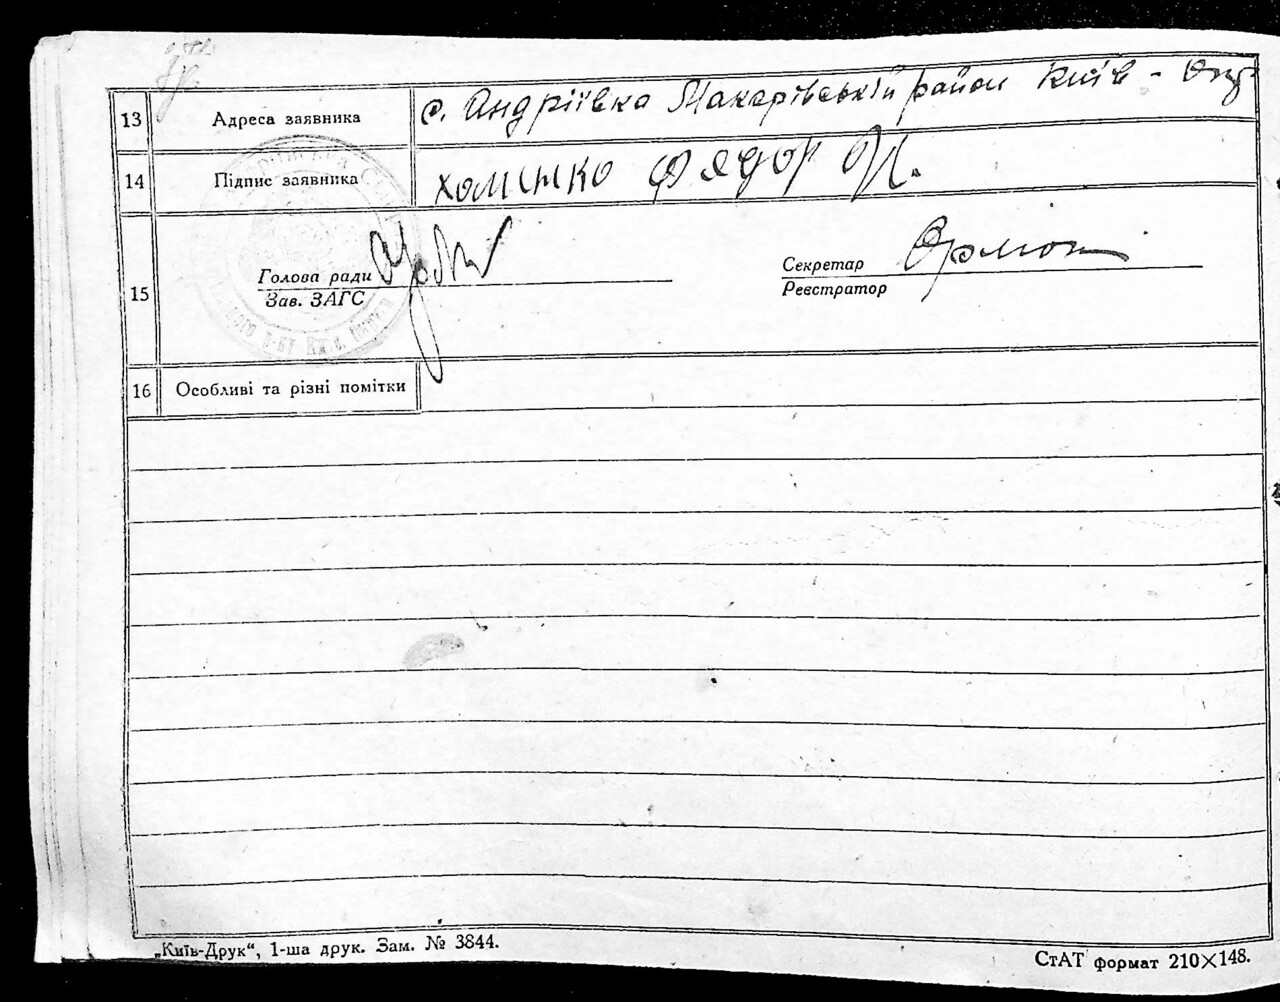 13 Адреса заявника с. Андріївка Макарівській район Київ - Окр
14 Підпис заявника Хоменко Фядор
15 Голова ради Секретар
Зав. ЗАГС Реєстратор
16 Особливі та різні помітки
„Київ-Друк“, 1-ша друк. Зам. № 3844. СтАТ формат 210×148.